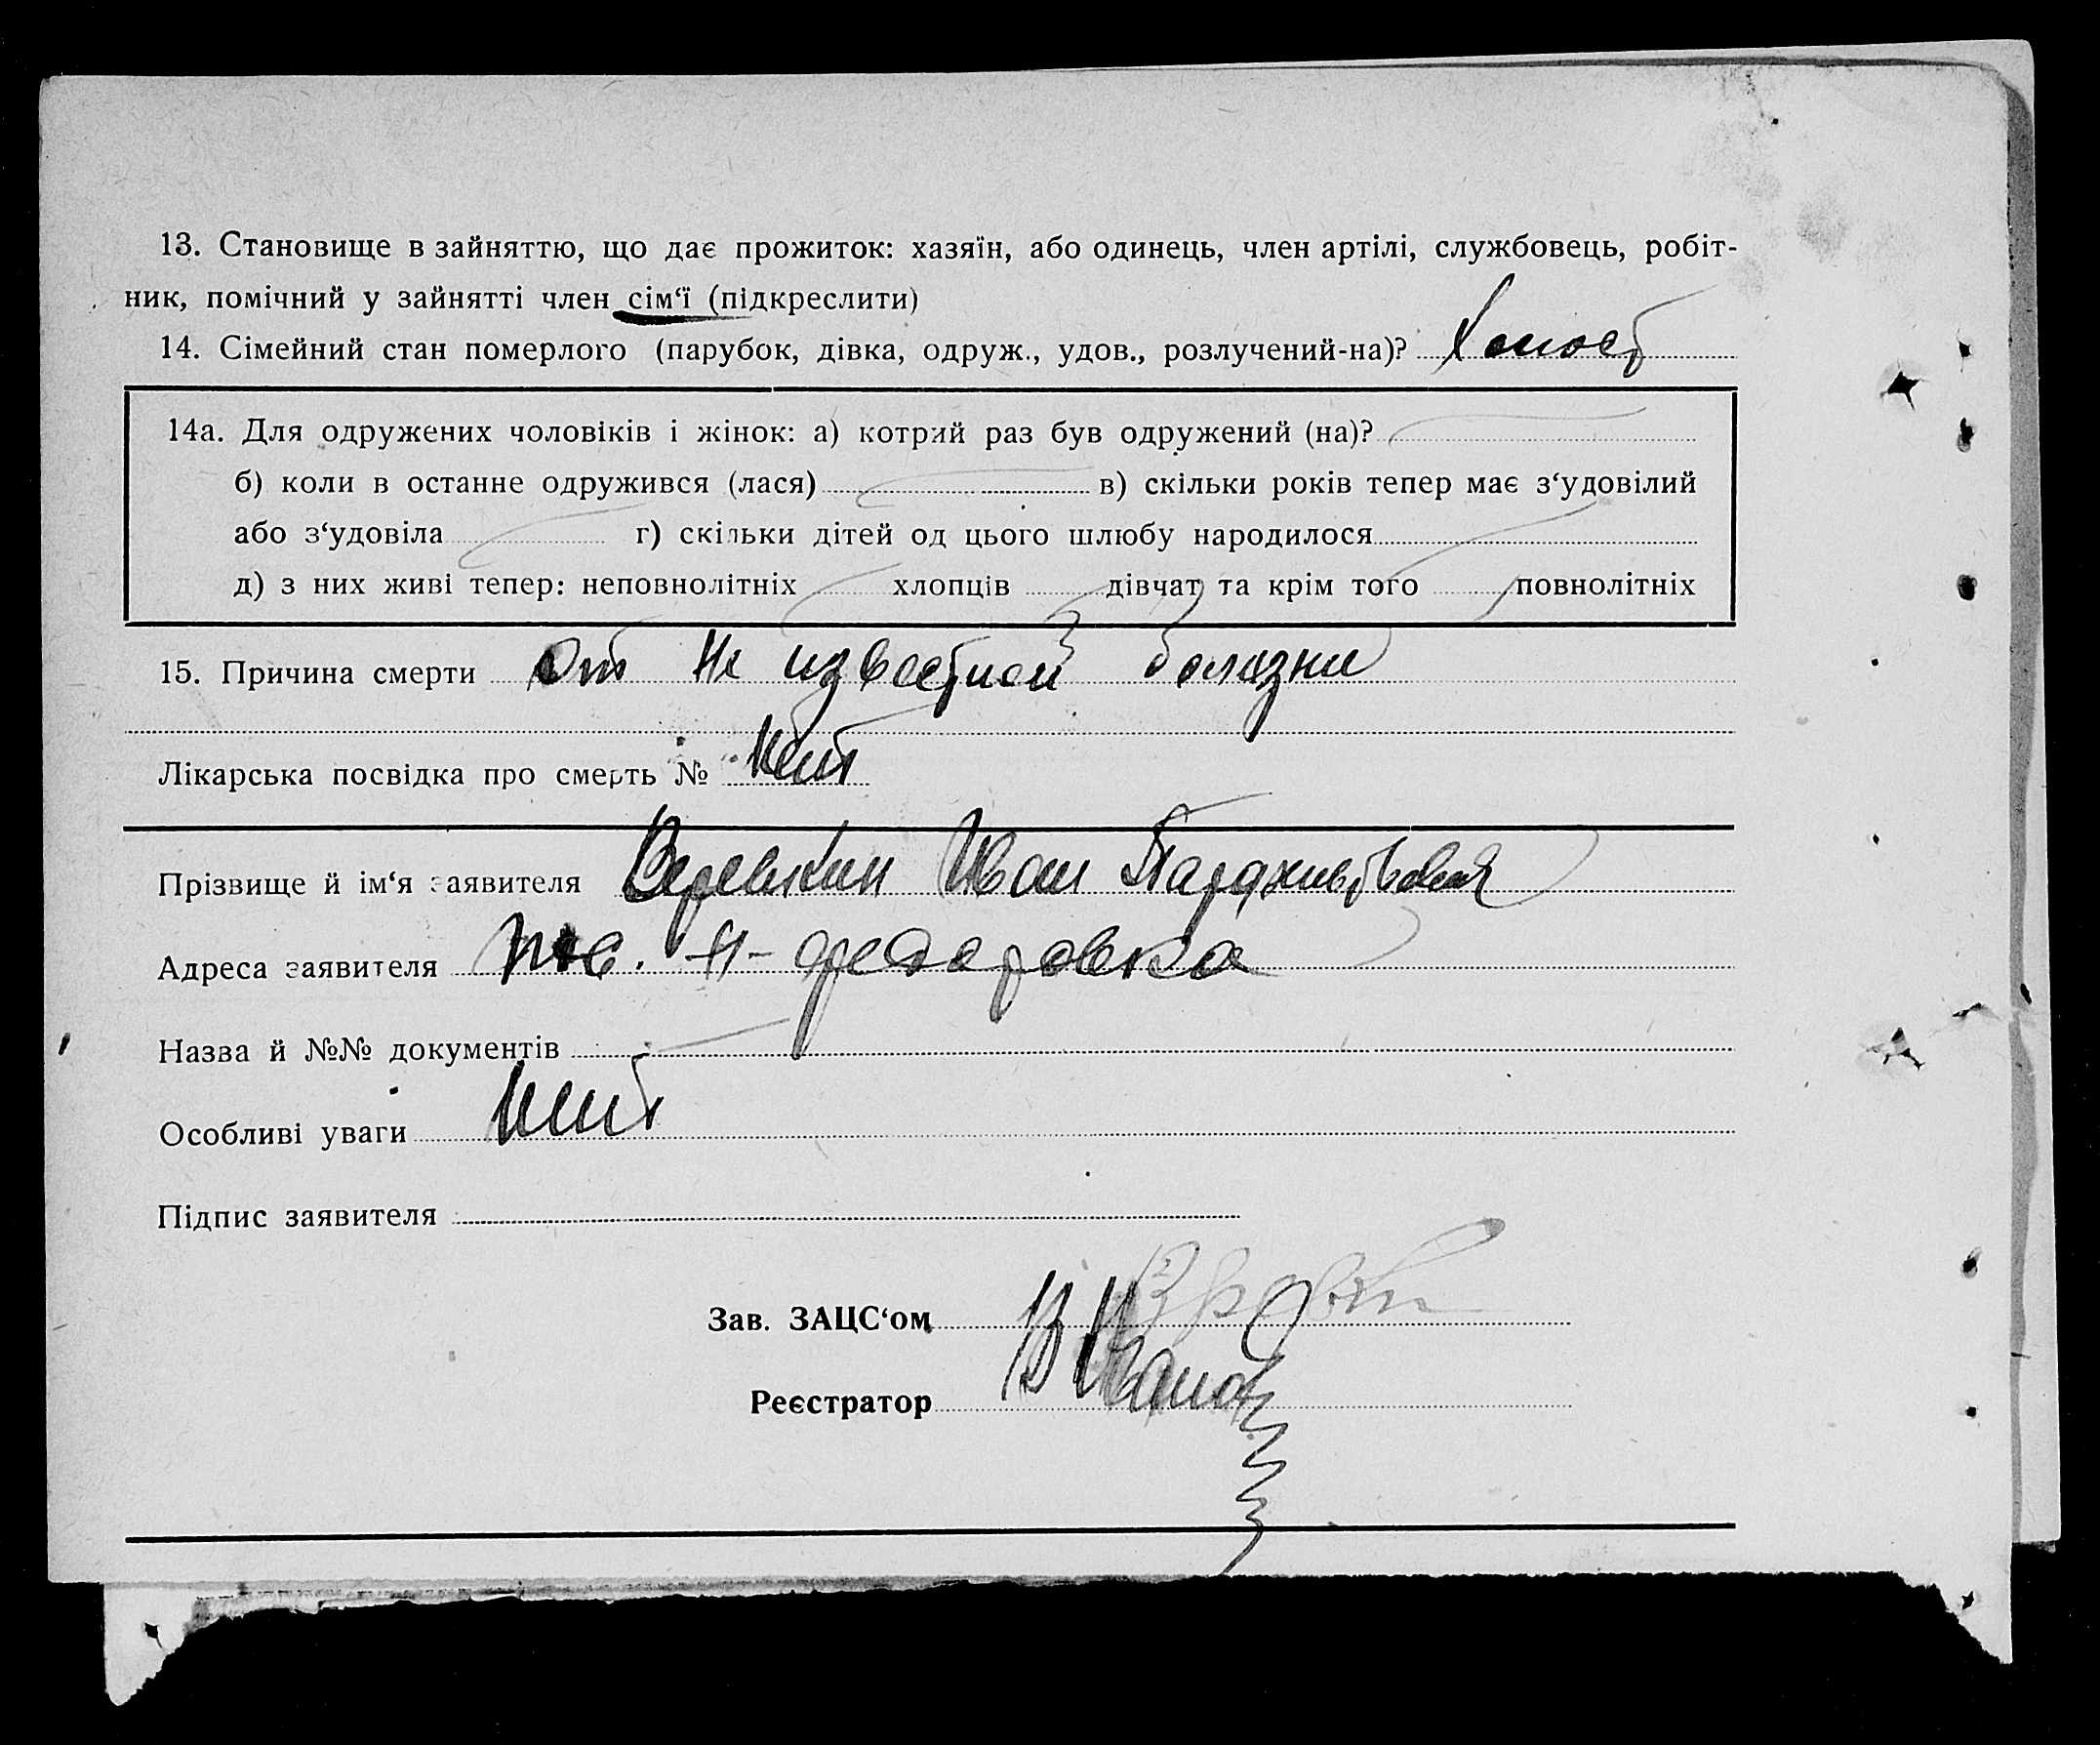 13. Становище в зайняттю, що дає прожиток: хазяїн, або одинець, член артілі, службовець, робіт-
ник, помічний у зайнятті член сім‘ї (підкреслити)
14. Сімейний стан померлого (парубок, дівка, одруж., удов., розлучений-на)? Холост
14а. Для одружених чоловіків і жінок: а) котрий раз був одружений (на)?
б) коли в останне одружився (лася) в) скільки років тепер має з‘удовілий
або з‘удовіла г) скільки дітей од цього шлюбу народилося
д) з них живі тепер: неповнолітніх хлопців дівчат та крім того повнолітніх
15. Причина смерти От не известной болезни
Лікарська посвідка про смерть № Нет
Прізвище й ім‘я заявителя Веревкин Иван
Адреса заявителя пос. Н-федоровка
Назва й №№ документів
Особливі уваги Нет
Підпис заявителя
Зав. ЗАЦС‘ом
Реєстратор